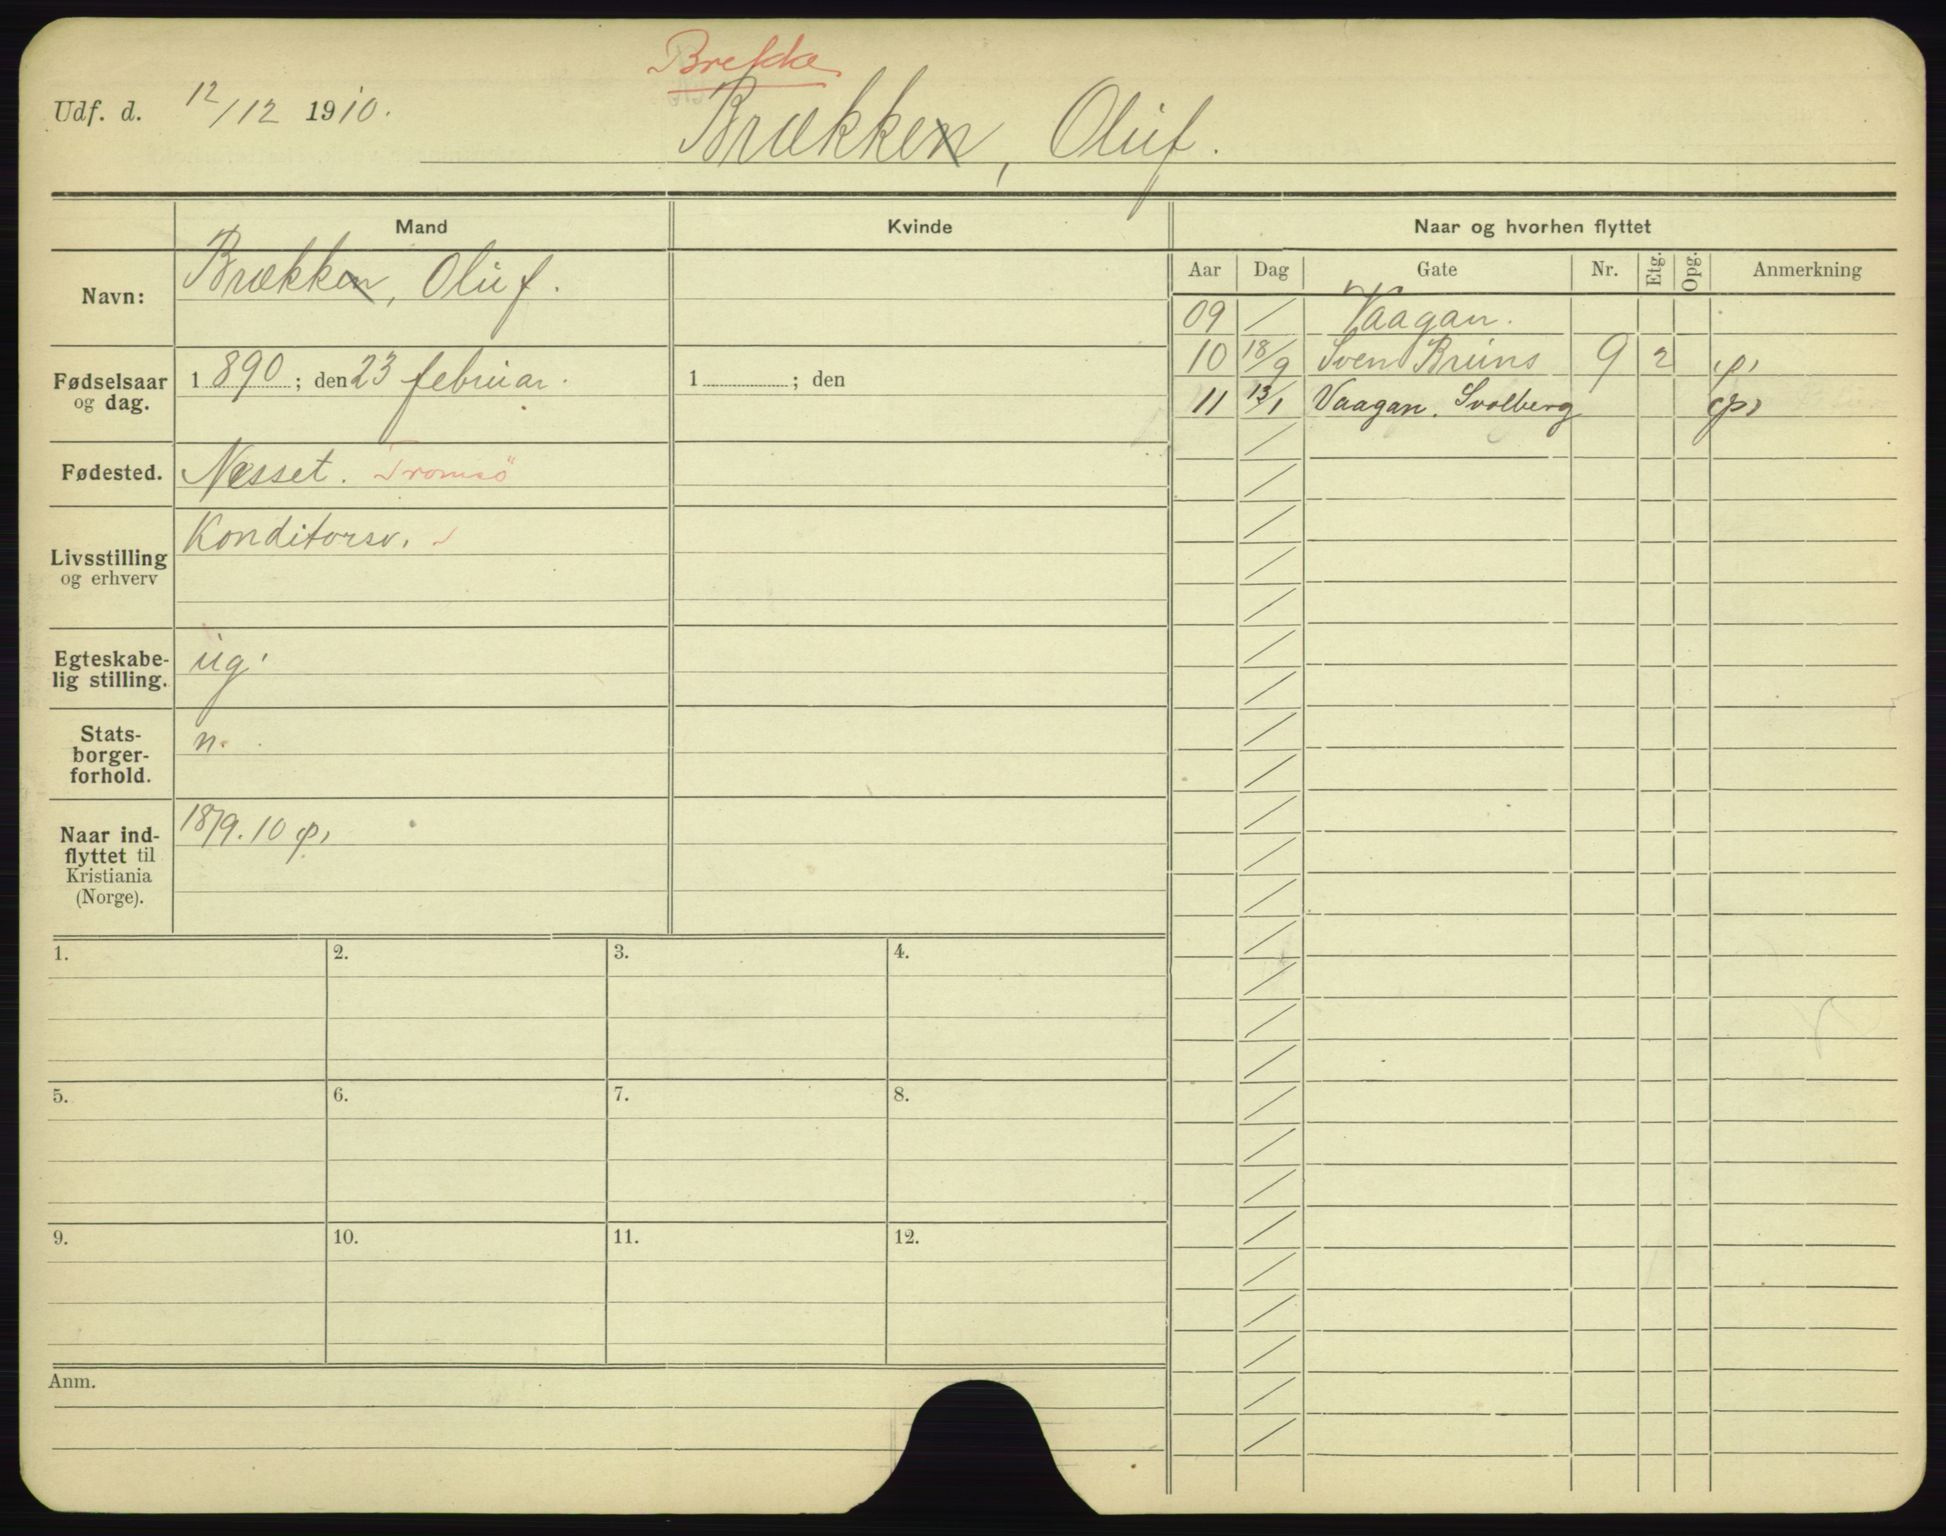 Brekke
Udf. d. 12/12 1910.
Brækken, Oluf.
Mand
Kvinde
Naar og hvorhen flyttet
Aar Dag Gate Nr. Etg. Opg. Anmerkning
Navn: Brækken, Oluf.
Fødselsaar og dag. 1890; den 23 februar. 1 ; den
Fødested. Nesset. Tromsö
Livsstilling og erhverv Konditorsv.
Egteskabe-
lig stilling. ug.
Stats-
borger-
forhold. n.
Naar ind-
flyttet til
Kristiania
(Norge). 18/9.10 φ,
09 / Vaagan.
10 18/9 Sven Bruns 9 2 φ,
11 13/1 Vaagan. Svolberg φ,
1. 2. 3. 4.
5. 6. 7. 8.
9. 10. 11. 12.
Anm.